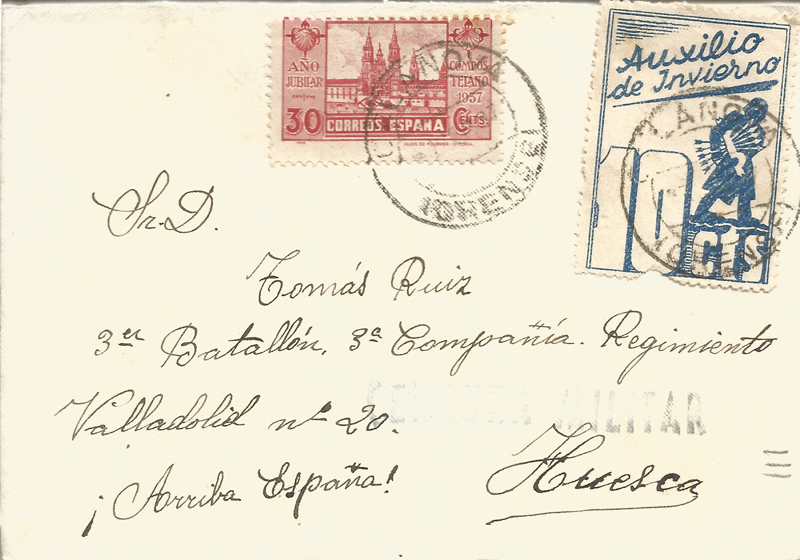 AÑO JUBILAR
COMPOS TELANO 1937
30 CENTS.
CORREOS ESPAÑA
Auxilio
de Invierno
10 CTS
(ORENSE)
Sr. D.
Tomás Ruiz
3er Batallón, 3ª Compañía. Regimiento
Valladolid nº 20.
MILITAR
¡Arriba España!
Huesca